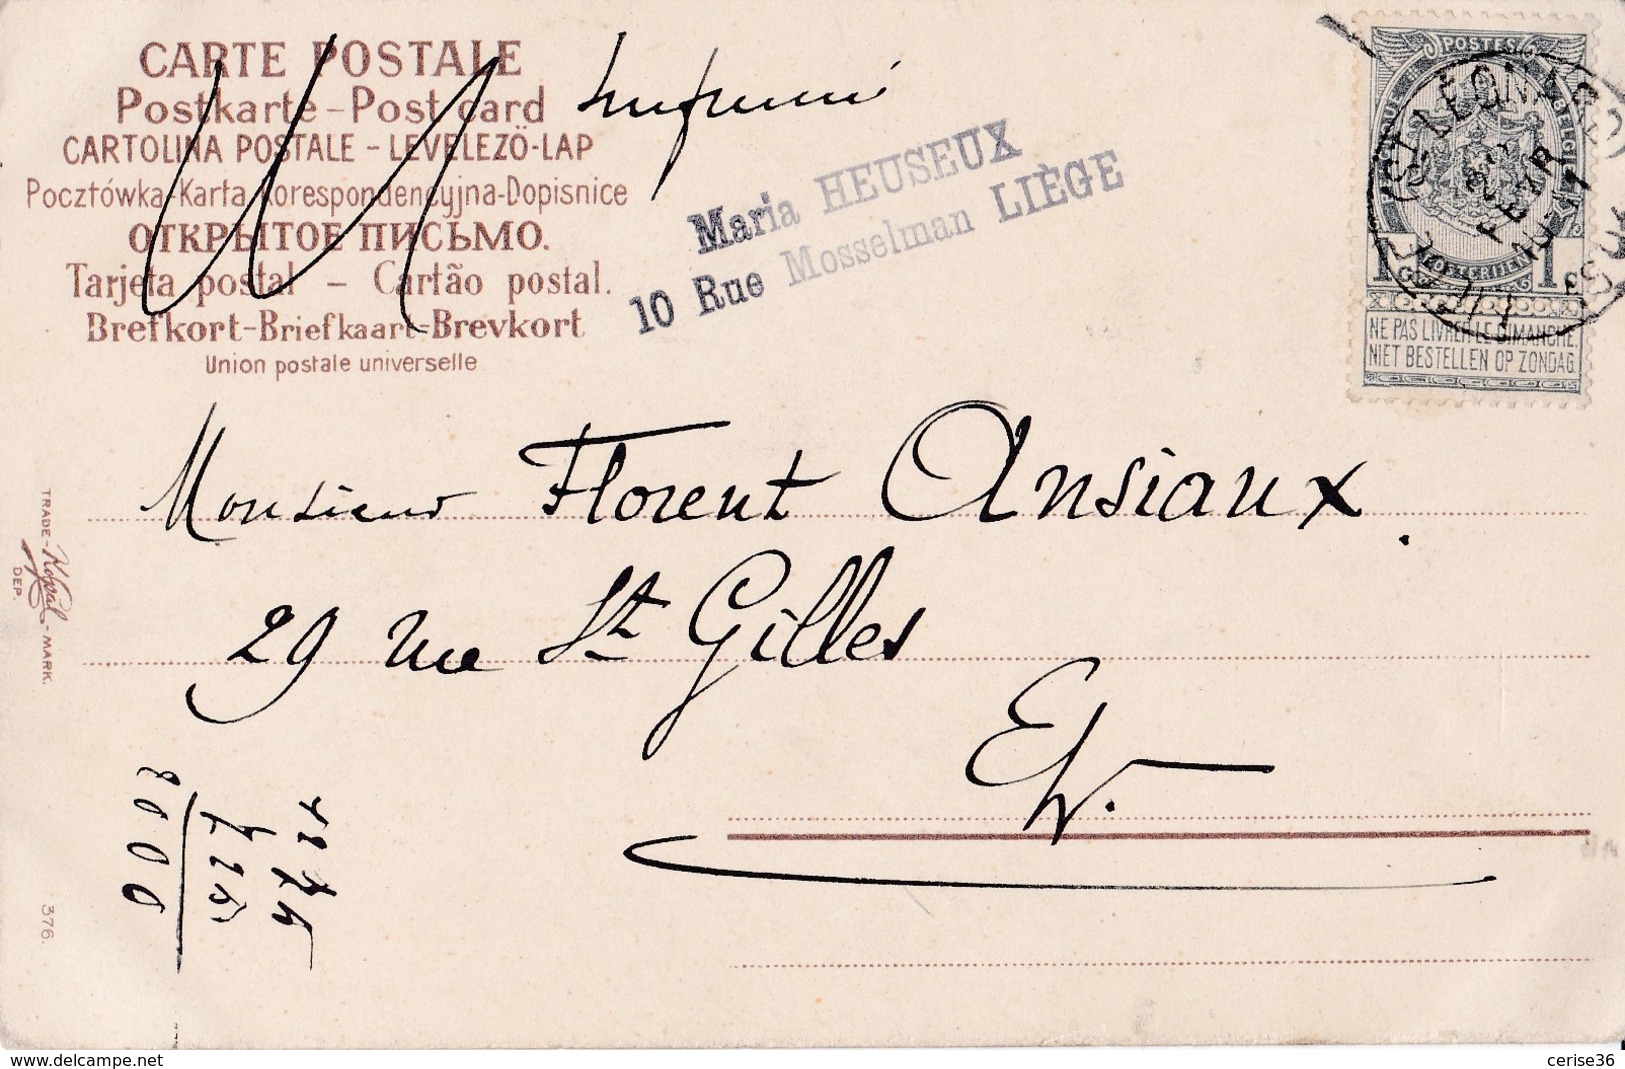 CARTE POSTALE
Postkarte - Post card
CARTOLINA POSTALE - LEVELEZÖ-LAP
Pocztówka-Karta korespondencyjna-Dopisnice
ОТКРЫТОЕ ПИСЬМО.
Tarjeta postal - Cartão postal.
Brefkort-Briefkaart=Brevkort
Union postale universelle
Imprimé
Maria HEUSEUX
10 Rue Mosselman LIÈGE
POSTES
NE PAS LIVRER LE DIMANCHE.
NIET BESTELLEN OP ZONDAG.
Monsieur Florent Ansiaux.
29 rue St Gilles
EV.
TRADE-Kopal-MARK.
DEP.
376.
delcampe.net
cerise36